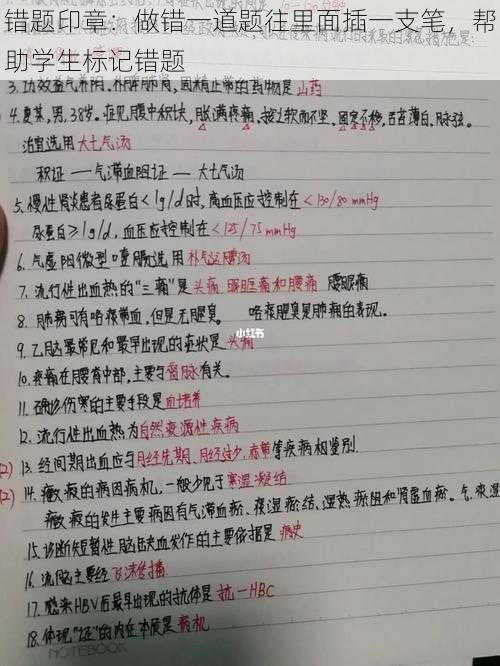 错题印章：做错一道题往里面插一支笔，帮
助学生标记错题
3.功效益气养阴、补脾肺肾，固精止带的药物是 山药
4.夏某，男，38岁。症见腹中积块，胀满疼痛，按之软而不坚，固定不移，舌苔薄白，脉弦。
治宜选用大七气汤
积证 —— 气滞血阻证 — 大七气汤
5.慢性肾炎患者尿蛋白<1g/d时，高血压应控制在<130/80 mmHg
尿蛋白≥1g/d，血压应控制在<125/75 mmHg
6.气虚阳微型噎膈选用 补气运脾汤
7.流行性出血热的“三痛”是 头痛 眼眶痛和腰痛 腰眼痛
8.肺痨可有咯痰带血，但是无腥臭。 咯痰腥臭是肺痈的表现。
小红书
9.乙脑最常见和最早出现的症状是 头痛
10.疼痛在腰脊中部，主要与督脉有关。
11.确诊伤寒的主要手段是血培养
12.流行性出血热为自然疫源性疾病
(2) 13.经间期出血应与月经先期、月经过少、赤带等疾病相鉴别
(2) 14.癥瘕的病因病机，一般少见于寒湿凝结
癥瘕的发生主要病因有气滞血瘀、痰湿瘀结、湿热瘀阻和肾虚血瘀。气、寒湿
15.诊断短暂性脑缺血发作的主要依据是 病史
16.流脑主要经飞沫传播
17.感染HBV后最早出现的抗体是 抗-HBC
18.体现“证”的内在本质是病机
NOTEBOOK